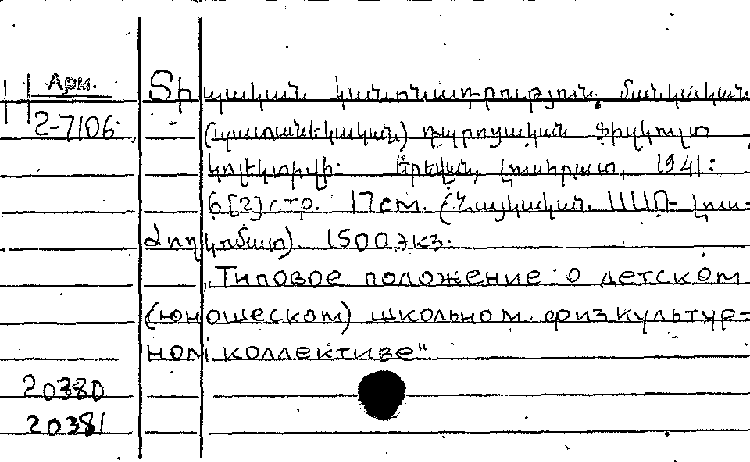 Арм. Տիպական կանոնադրություն մանկական
2-7106 (պատանեկական) դպրոցական ֆիզկուլտ
կոլեկտիվի: Երևան, Լուսհրատ, 1941:
6[2] стр. 17 см. (Հայկական ՍՍՌ- Լուս-
ժողկոմատ). 1500 экз.
„Типовое положение о детском
(юношеском) школьном физкультур-
ном коллективе"
20380
20381